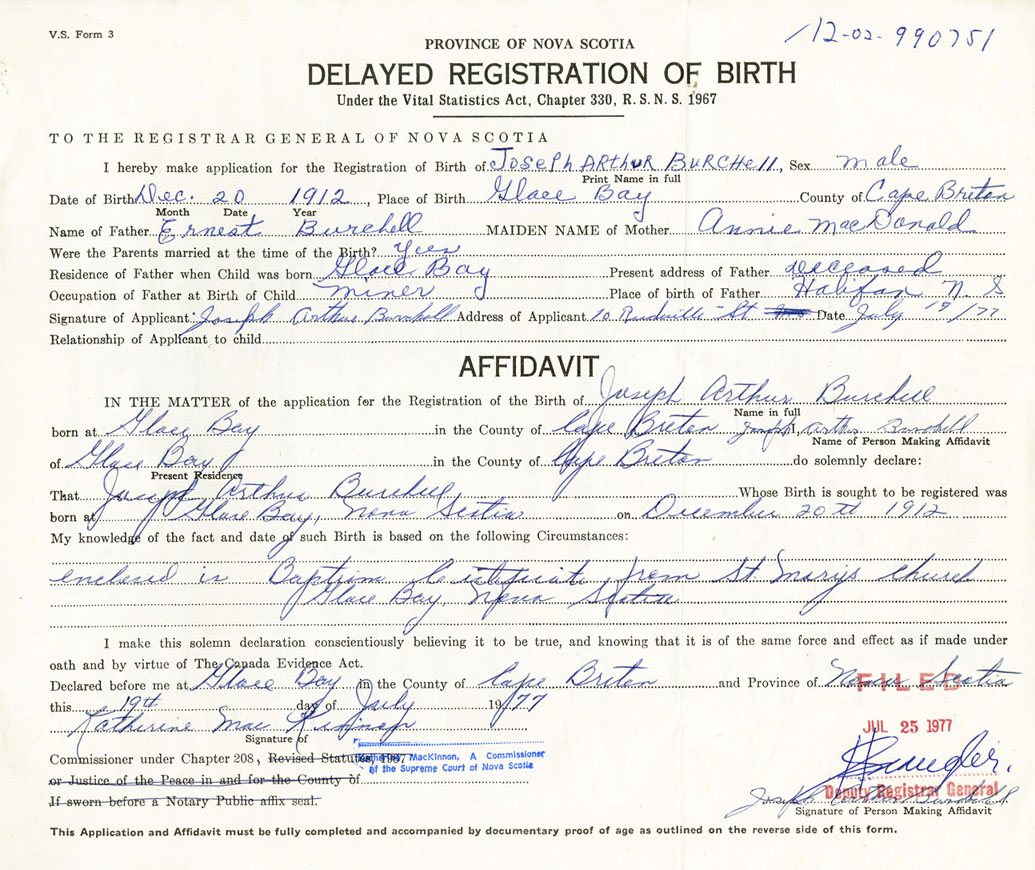 V.S. Form 3
112-02-990751
PROVINCE OF NOVA SCOTIA
DELAYED REGISTRATION OF BIRTH
Under the Vital Statistics Act, Chapter 330, R. S. N. S. 1967
TO THE REGISTRAR GENERAL OF NOVA SCOTIA
I hereby make application for the Registration of Birth of Joseph Arthur Burchell, Sex male
Print Name in full
Date of Birth Dec. 20 1912, Place of Birth Glace Bay County of Cape Breton
Month Date Year
Name of Father Ernest Burchell MAIDEN NAME of Mother Annie MacDonald
Were the Parents married at the time of the Birth? Yes
Residence of Father when Child was born Glace Bay Present address of Father deceased
Occupation of Father at Birth of Child miner Place of birth of Father Halifax N S
Signature of Applicant: Joseph Arthur Burchell Address of Applicant 10 St Date July 19/77
Relationship of Applicant to child
AFFIDAVIT
IN THE MATTER of the application for the Registration of the Birth of Joseph Arthur Burchell
Name in full
born at Glace Bay in the County of Cape Breton I, Joseph Arthur Burchell
Name of Person Making Affidavit
of Glace Bay in the County of Cape Breton do solemnly declare:
Present Residence
That Joseph Arthur Burchell, Whose Birth is sought to be registered was
born at Glace Bay, Nova Scotia on December 20th 1912
My knowledge of the fact and date of such Birth is based on the following Circumstances:
enclosed is Baptism Certificate from St. Marys Church
Glace Bay, Nova Scotia
I make this solemn declaration conscientiously believing it to be true, and knowing that it is of the same force and effect as if made under
oath and by virtue of The Canada Evidence Act.
Declared before me at Glace Bay in the County of Cape Breton and Province of Nova Scotia
FILED
this 19th day of July 1977
JUL 25 1977
Katherine MacKinnon
Signature of
Commissioner under Chapter 208, Revised Statutes, 1967
Katherine MacKinnon, A Commissioner
of the Supreme Court of Nova Scotia
or Justice of the Peace in and for the County of
Deputy Registrar General
If sworn before a Notary Public affix seal.
Joseph Arthur Burchell
Signature of Person Making Affidavit
This Application and Affidavit must be fully completed and accompanied by documentary proof of age as outlined on the reverse side of this form.